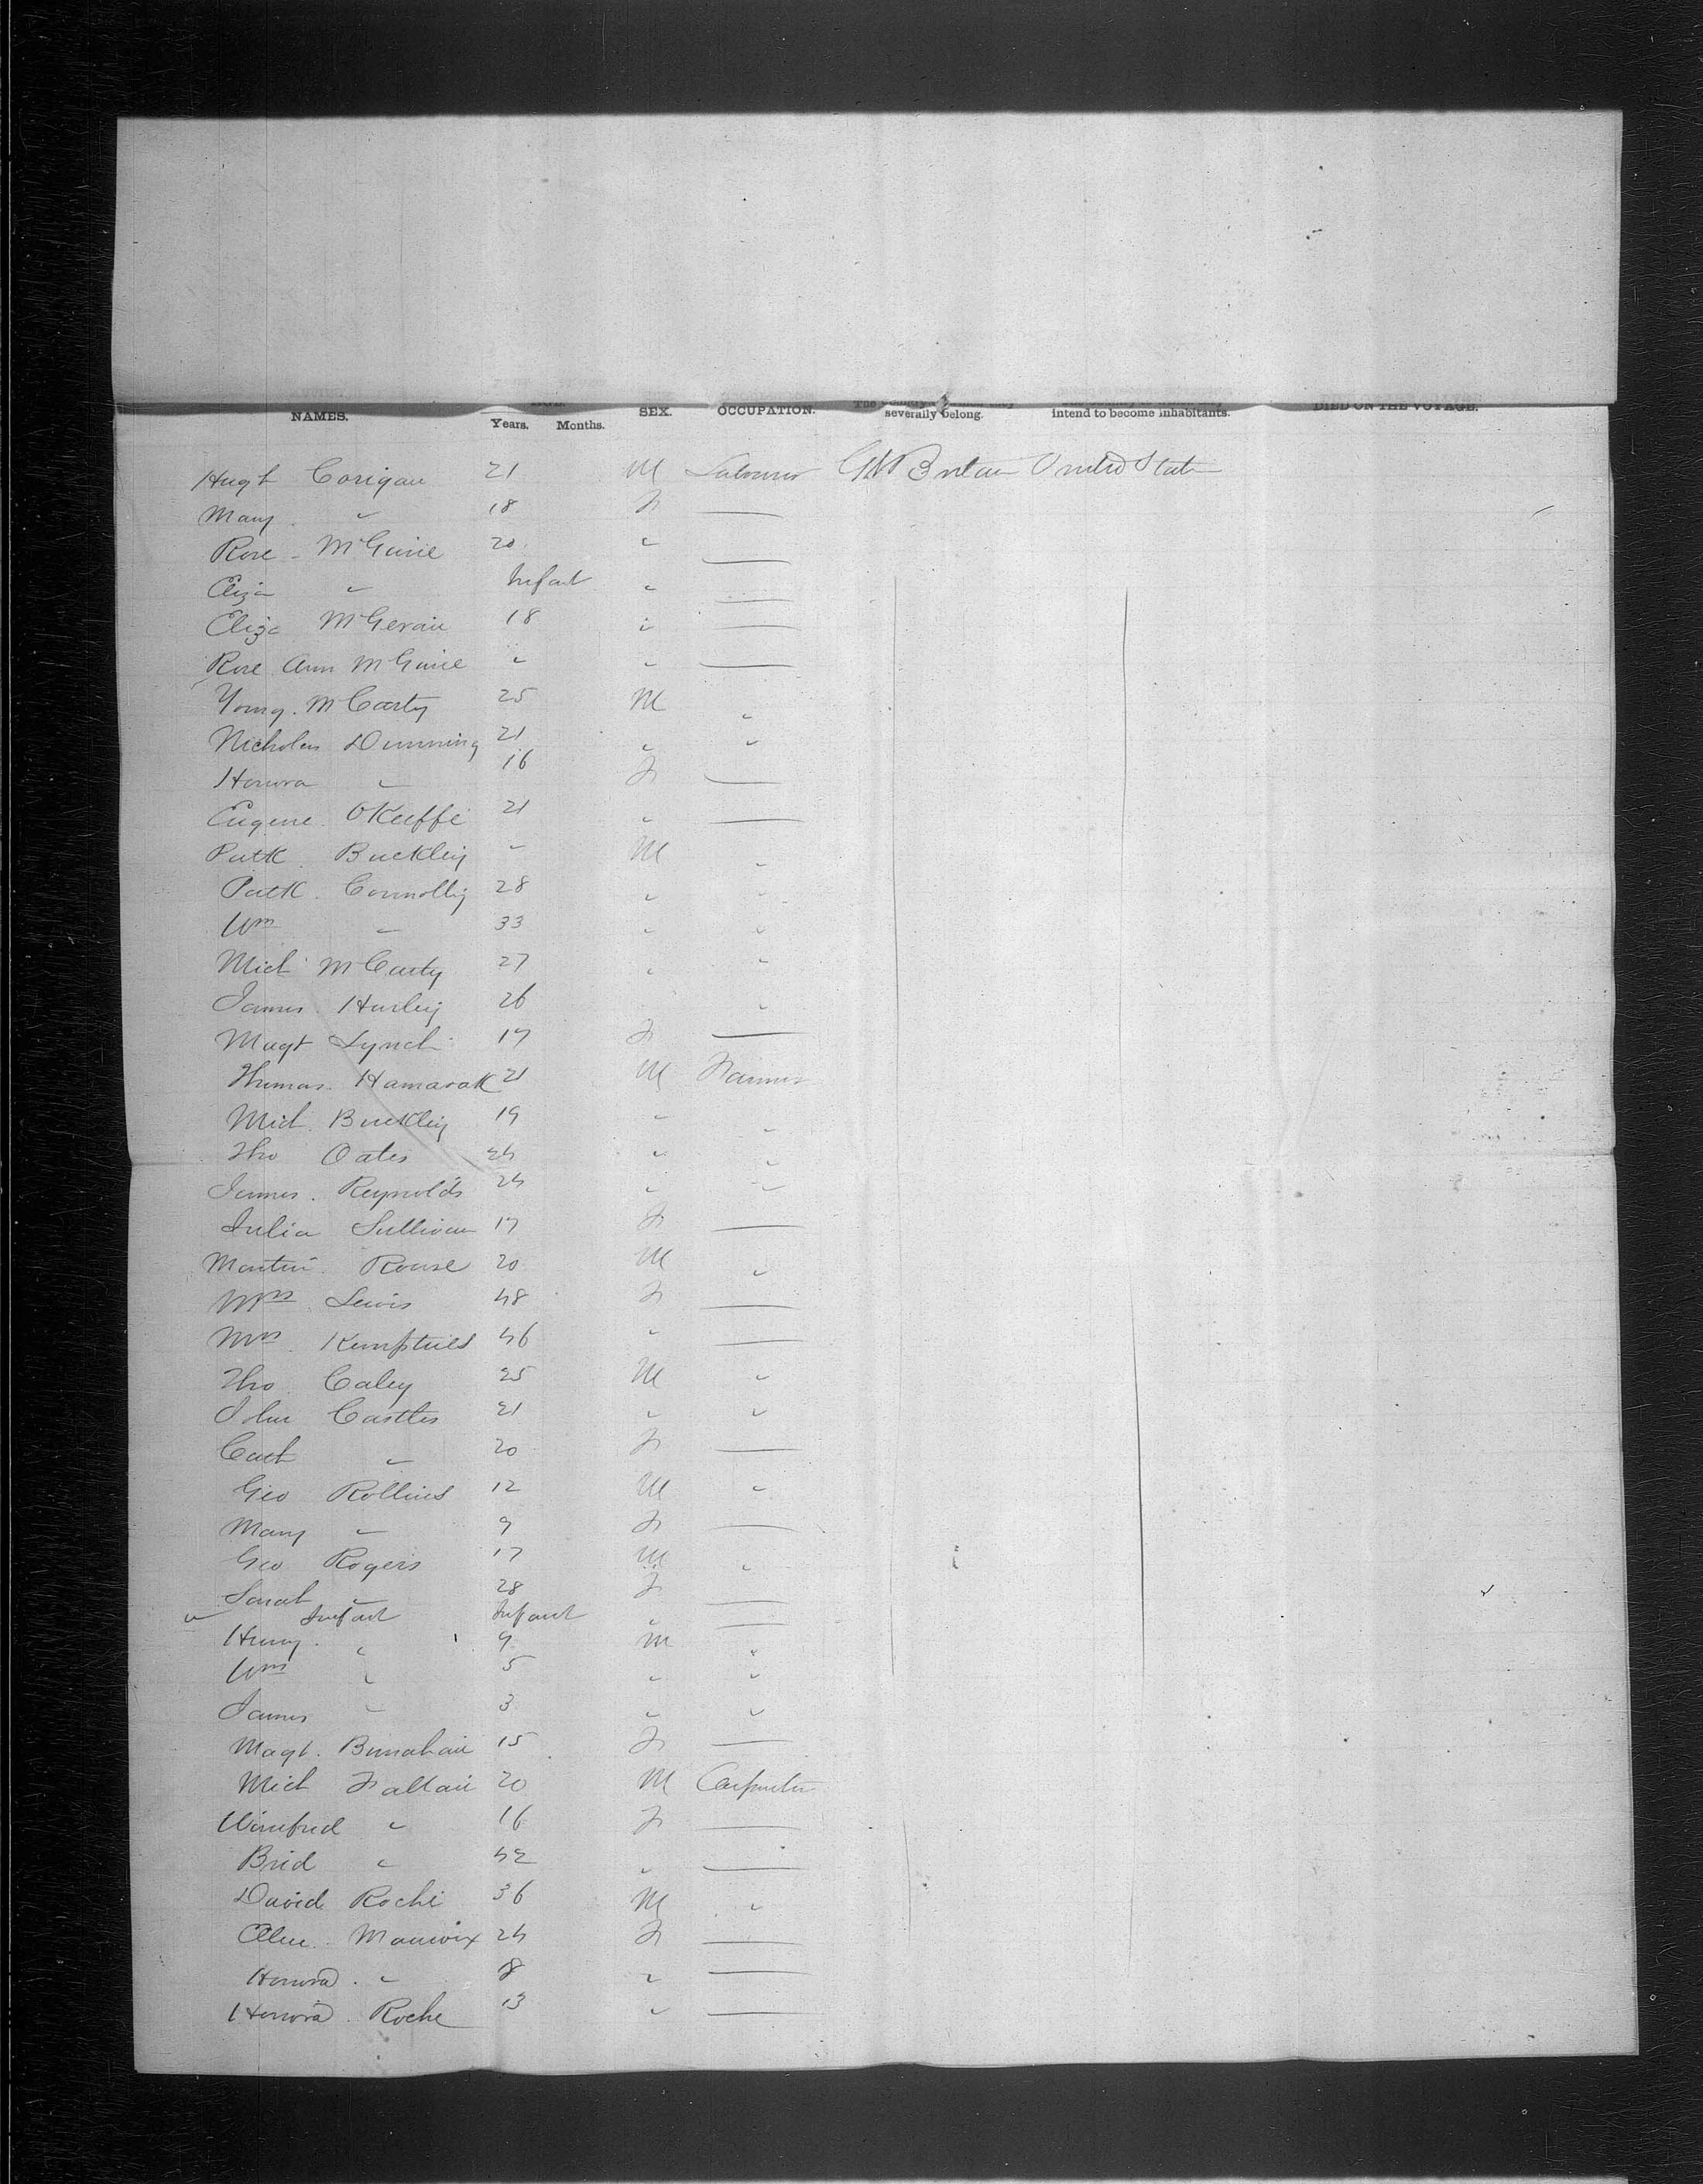 NAMES. Years. Months. SEX. OCCUPATION. severally belong. intend to become inhabitants. DIED ON THE VOYAGE.
Hugh Corigan 21 M Labourer Gt Britain United State
Mary " 18 F —
Rose McGuire 20 " —
Eliza " Infant " —
Eliza 18 " —
Rose Ann McGuire " " —
Young McCarty 25 M "
Nicholas Dunning 21 " "
Honora " 16 F —
Eugene OKeeffe 21 " —
Patk Buckley " M "
Patk Connolly 28 " "
Wm " 33 " "
Mich McCarty 27 " "
James Hurley 26 "
Magt Lynch 17 F —
Thomas 21 M Farmer
Mich Buckley 19 " "
Tho Oates 24 " "
James Reynolds 24 " "
Julia Sullivan 17 F —
Martin Rouse 20 M "
Mrs Lewis 48 F —
Mrs 46 " —
Tho Caley 25 M "
John Castles 21 " "
Cath " 20 F —
Geo Rollins 12 M "
Mary " 9 F —
Geo Rogers 17 M "
Sarah " 28 F —
" Infant Infant " —
Henry " 9 M "
Wm " 5 " "
James " 3 " "
Magt 15 F —
Mich Fallan 20 M Carpenter
Winifred " 16 F —
Brid " 42 " —
David Roche 36 M "
24 F —
Honora " 8 " —
Honora Roche 13 " —